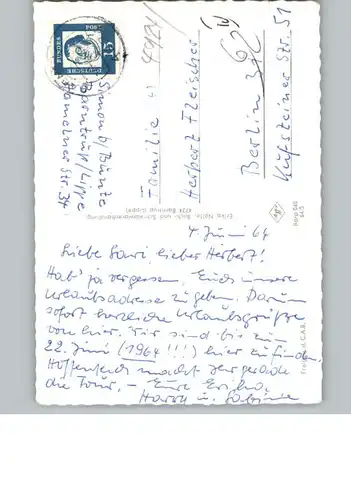 4. Juni 64
Liebe Lauri, lieber Herbert!
Hab' ja vergessen, Euch unsere
Urlaubsadresse zu geben. Darum
sofort herzliche Urlaubsgrüße
von hier. Wir sind bis zum
22. Juni (1964 !!!) hier zu finden.
Hoffentlich macht Ihr gerade
die Tour. – Eure Erika,
Harry u. Sabine
Familie
Herbert Fleischer
Berlin 30
Kufsteiner Str. 51
Simon b/ Bunte
Barntrup/Lippe
Hamelner Str. 34
DEUTSCHE
BUNDES
POST
15
Erika Nolte, Buch- und Schreibwarenhandlung
4924 Barntrup (Lippe)